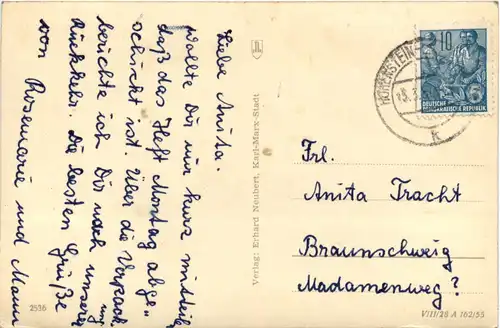 Liebe Anita.
Wollte Dir nur kurz mitteilen
daß das Heft Montag abge„
schickt ist. Über die Verpack„
ung
berichte ich Dir nach unserer
Rückkehr. Die besten Grüße
von Rosemarie und Mann
2536
Verlag: Erhard Neubert, Karl-Marx-Stadt
HOHENSTEIN-
10
DEUTSCHE
DEMOKRATISCHE REPUBLIK
Frl.
Anita Tracht
Braunschweig
Madamenweg?
VIII/28 A 162/55